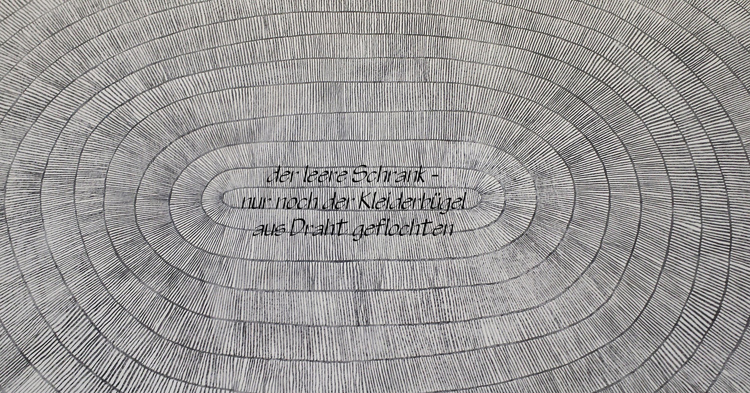 der leere Schrank -
nur noch der Kleiderbügel
aus Draht geflochten